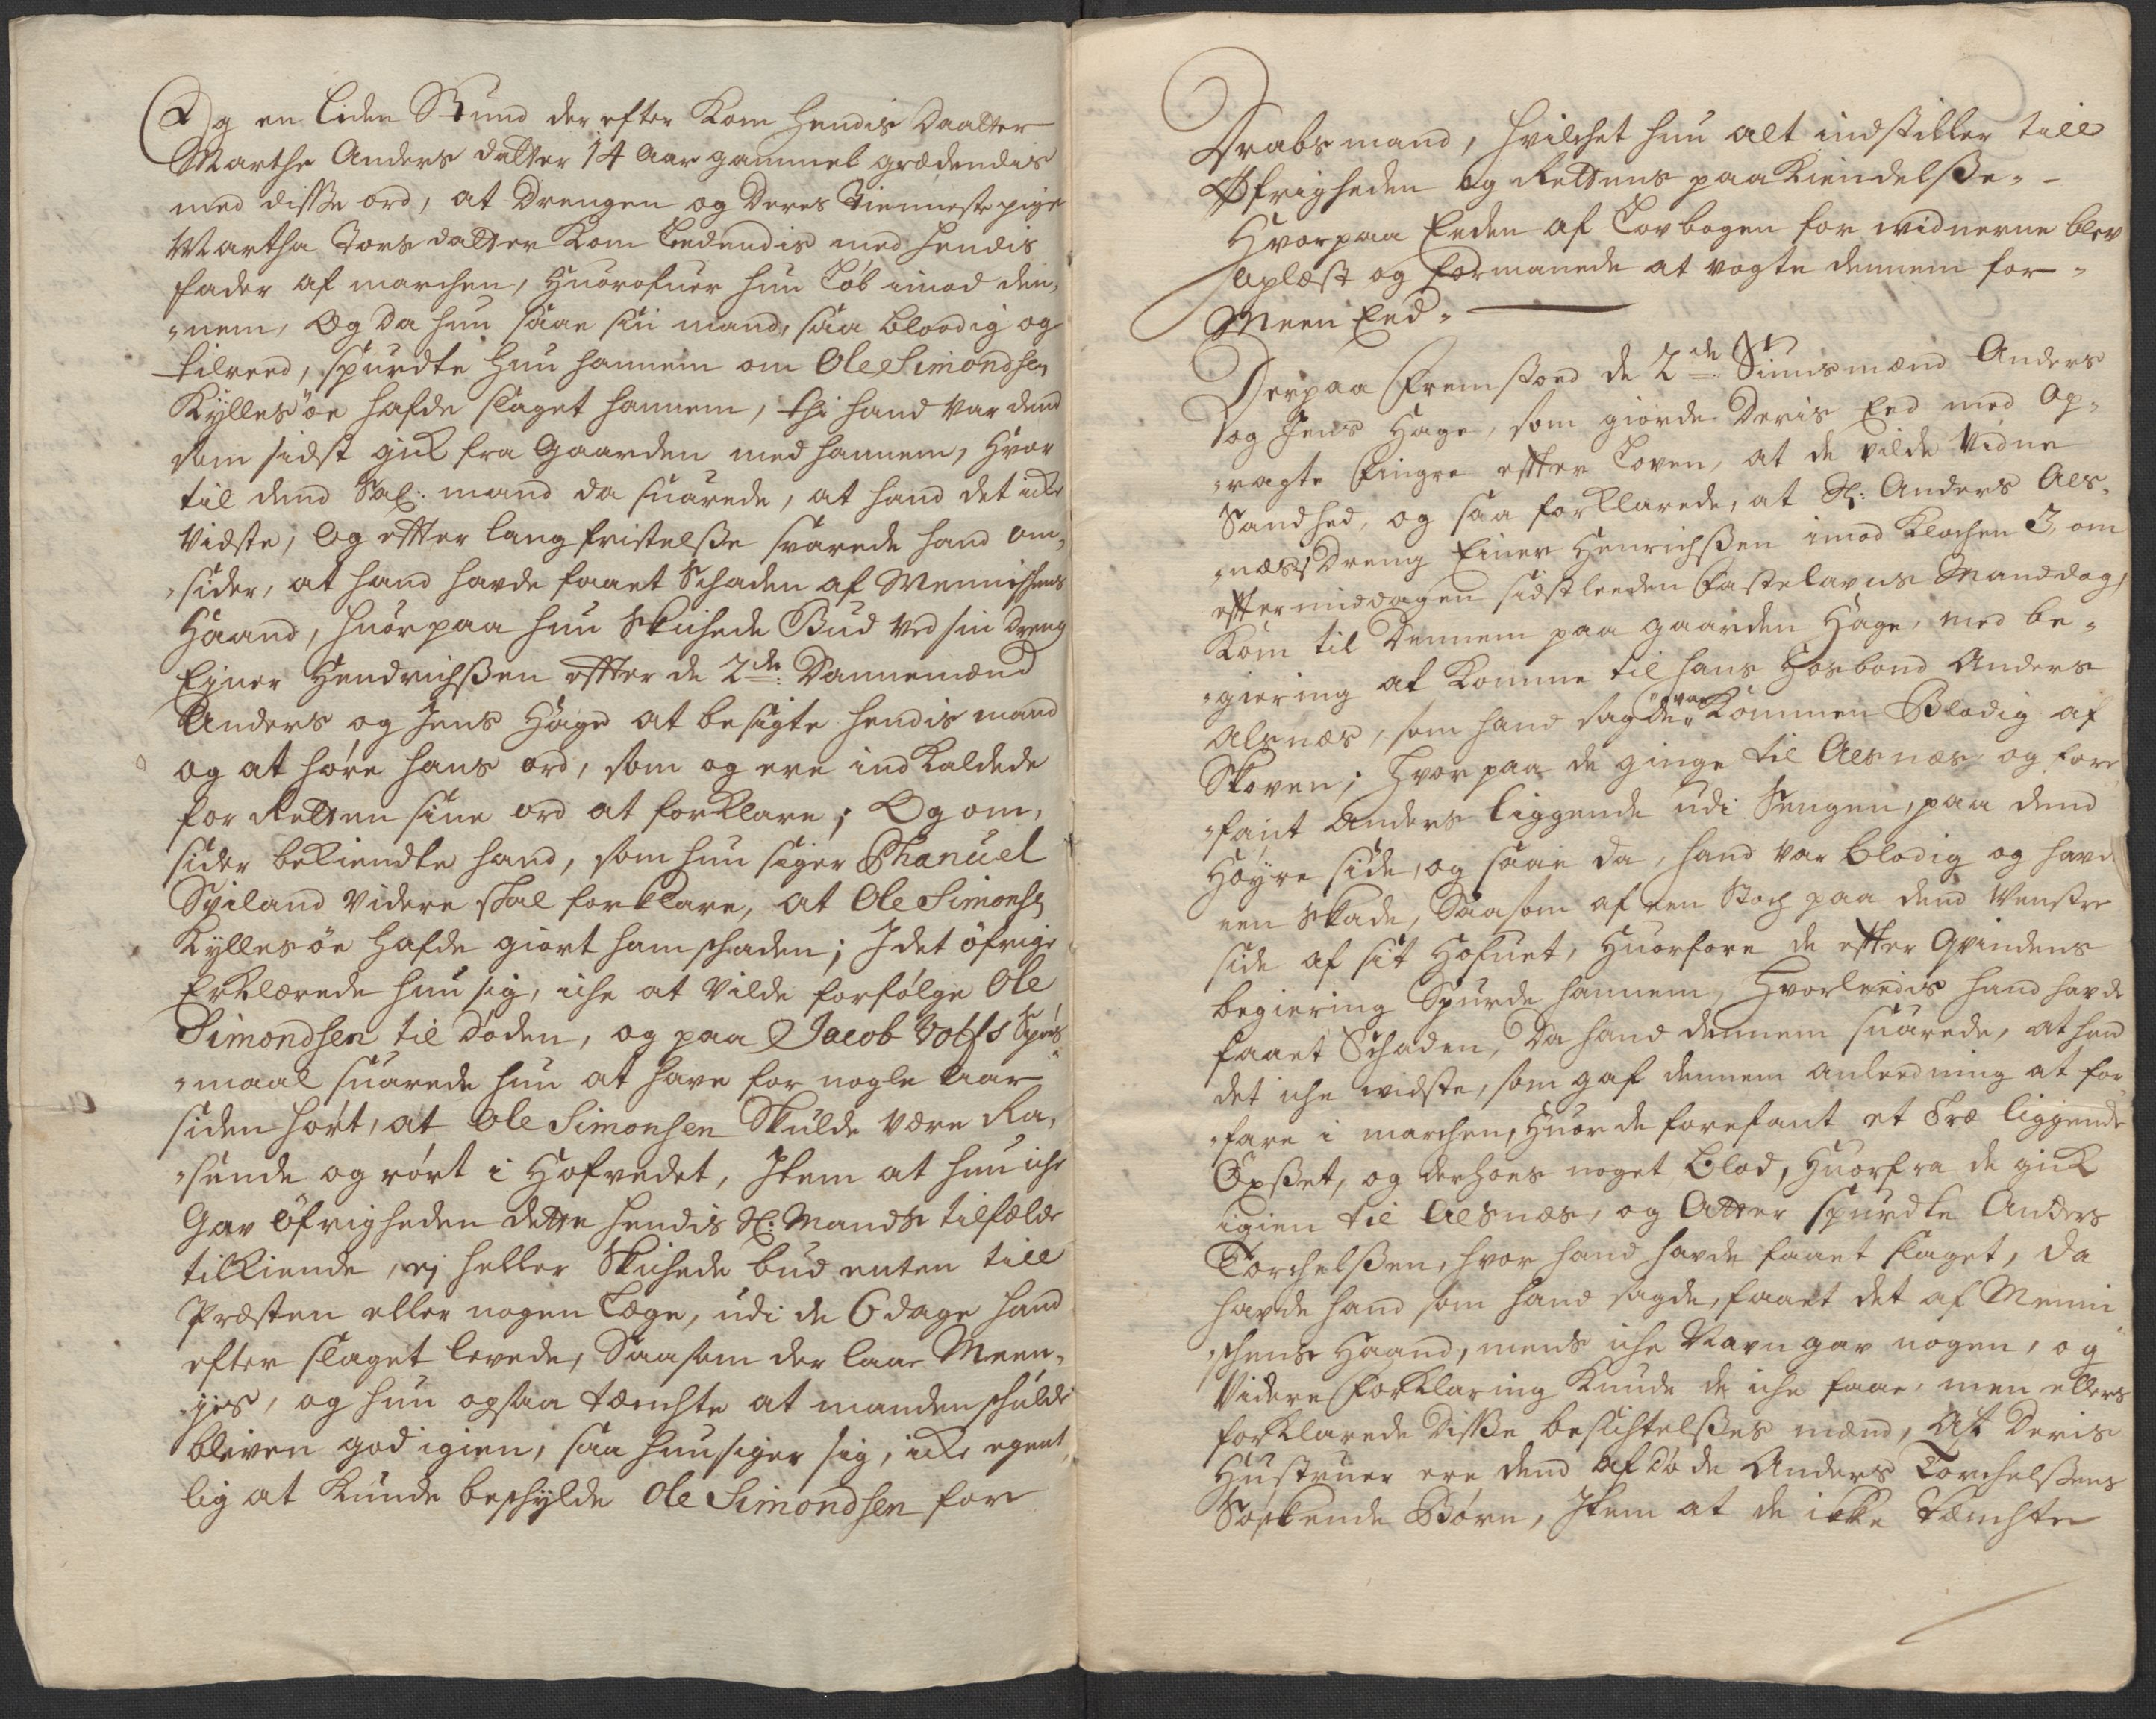 Og en liden Stund der efter kom hendis Daatter
Marthe Anders datter 14 Aar gammel grædendis
med disse ord, at drengen og deres tienneste pige
Martha Tors datter kom leedendis med hendis
fader af marchen, huorofuer hun løb imod den„
„nem, Og da hun saae sin mand, saa bloodig og
tilreed, spurdte hun hannem om Ole Simondsen
Kyllesöe hafde slaget hannem, thi hand var dend
som sidst gik fra gaarden med hannem, hvor
til dend Sal: mand da suarede, at hand det icke
vidste, og efter lang fristelsse svarede hand om„
„sider, at hand havde faaet Schaden af Mennischens
Haand, huorpaa hun skichede Bud ved sin dreng
Ejner Hendrichssen efter de 2de: Dannemænd
Anders og Jens Hage at besigte hendis mand
og at høre hans ord, som og ere indkaldede
for Retten sine ord at forklare; Og om„
sider bekiendte hand, som hun siger Phanuel
Sviland videre skal forklare, at Ole Simonsen
Kyllesöe hafde giort ham schaden; I det öfrige
Erklærede hun sig, iche at vilde forfølge Ole
Simondsen til döden, og paa Jacob Wolfs Spörs
„maal suarede hun at have for nogle Aar
siden hört, at Ole Simonsen Skulde være Ra„
„sende og rört i Hofvedet, Item at hun iche
Gav öfrigheden dette hendis Sl: Mands tilfælde
tilkiende, ej heller Skichede bud enten till
Præsten eller nogen Læge, udi de 6 dage hand
efter slaget levede, Saasom der laae Meen„
„jes, og hun ogsaa tæncthe at manden schulde
bliven god igien, saa hun siger sig, icke egent„
lig at kunde beschylde Ole Simondsen for
Drabsmand, hvilchet hun alt indstiller till
Øfrigheden og Rettens paakiendelsse.-
Hvorpaa Eeden af Lovbogen for widnerne blev
oplæst og formanede at vogte dennem for
Meen Eed.
Derpaa fremstoed de 2de: Siunsmænd Anders
og Jens Hage, som giorde deris Eed med op„
„ragte fingre efter Loven, at de vilde vidne
Sandhed, og saa forklarede, at Sl: Anders Als„
„næss dreng Einer Henrichssen imod Klochen 3, om
eftermiddagen sidstleeden fastelavns Mandag,
kom til dennem paa gaarden Hage, med be„
„giering at komme til hans Hosbond Anders
Alsnæs, som hand sagde var kommen Blodig af
Skoven; hvorpaa de ginge til Alsnæs og fore„
„fant Anders liggende udi Sengen, paa dend
Höyre side, og saae da, hand var blodig og havde
een skade, Saasom af een Stoch paa dend venstre
side af sit Hofuet, huorfore de efter qvindens
begiering Spurde hannem, hvorleedis hand havde
faaet Schaden, da hand dennem suarede, at hand
det iche widste, som gaf dennem anleedning at for„
„fare i marchen, huor de forefant et Træ liggende
Opsset, og derhoes noget blod, huorfra de gick
igien til Alsnæs, og Atter spurdte Anders
Torchelssen, hvor hand havde faaet slaget, da
havde hand som hand sagde, faaet det af Menni
„schens Haand, mens iche Navn gav nogen, og
videre forklaring kunde de iche faae, men ellers
forklarede disse besichtelsses mænd, at deris
Hustruer ere dend afdøde Anders Torchelssens
Søskende Børn, Item at de icke tæncthe